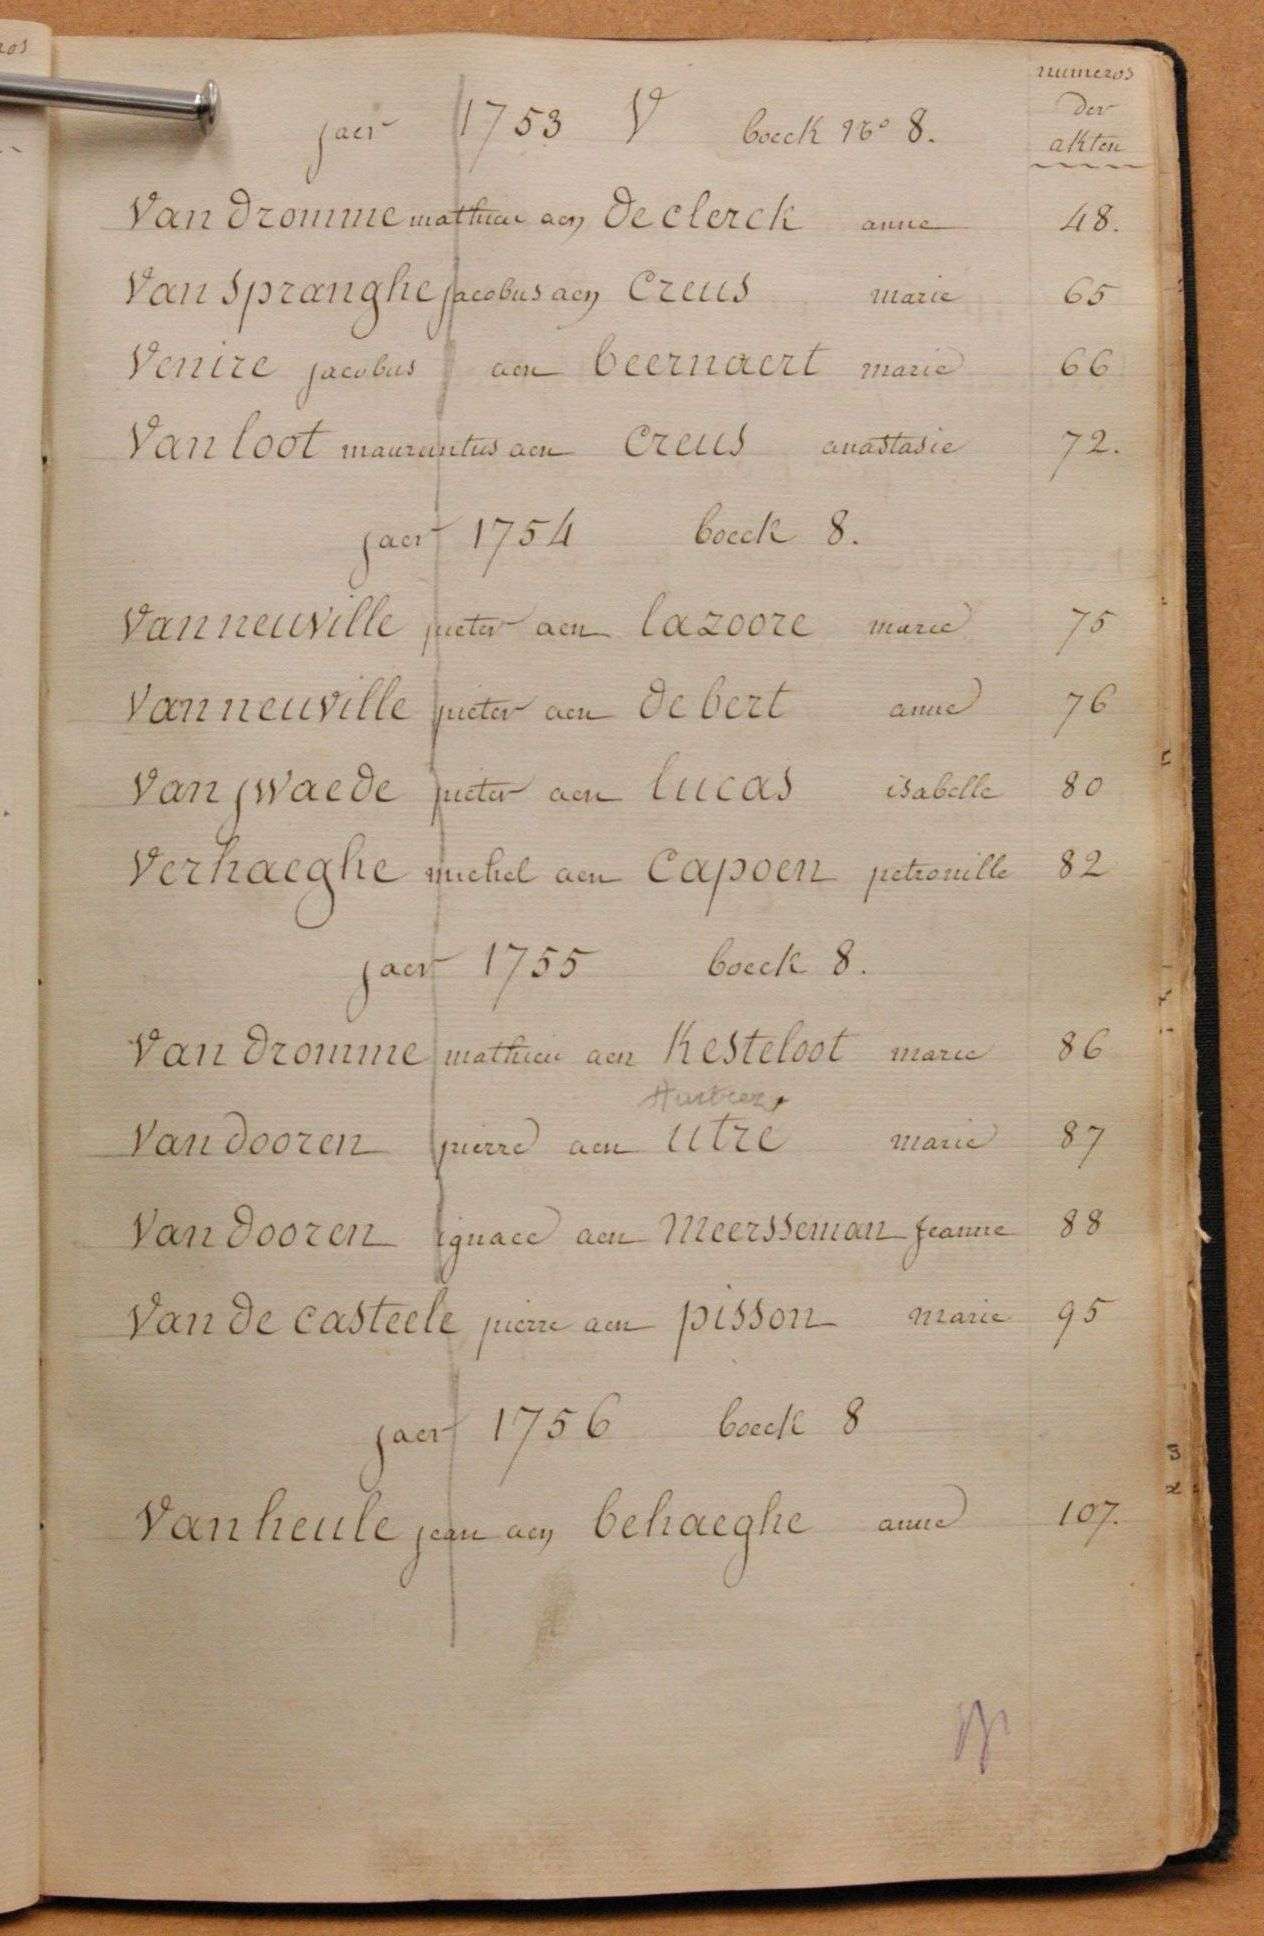 numeros
der
akten
jaer 1753 V boeck No 8.
Van Dromme mathieu aen De clerck anne 48.
Van Spranghe jacobus aen Creus marie 65
Venire jacobus aen beernaert marie 66
Van loot mauruntus aen Creus anastasie 72.
jaer 1754 boeck 8.
Vanneuville pieter aen lazoore marie 75
Vanneuville pieter aen De bert anne 76
Van jwaede pieter aen lucas isabelle 80
Verhaeghe michel aen Capoen petronille 82
jaer 1755 boeck 8.
Van Dromme mathieu aen Kesteloot marie 86
Van dooren pierre aen utre marie 87
Van Dooren ignace aen Meersseman jeanne 88
Van De casteele pierre aen pisson marie 95
jaer 1756 boeck 8
Vanheule jean aen behaeghe anne 107.